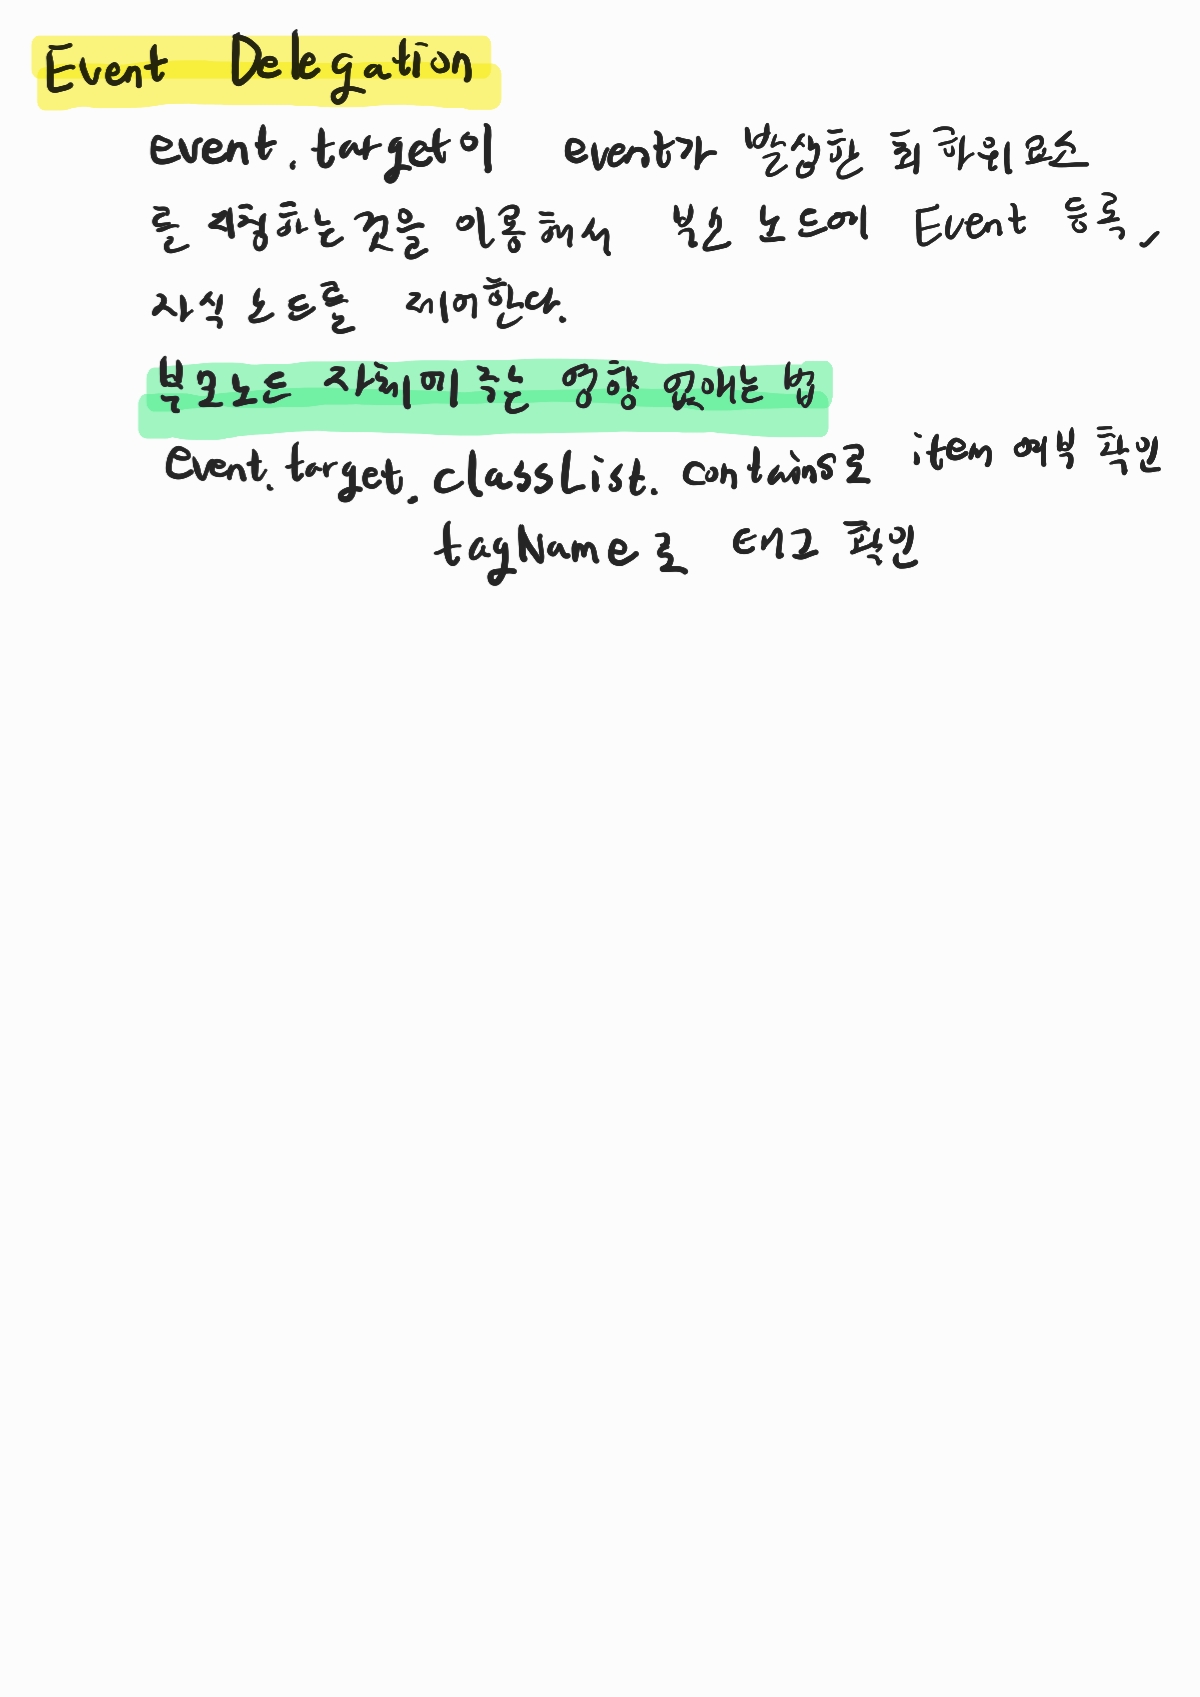 Event Delegation
event.target이 event가 발생한 최하위요소
를 지칭하는 것을 이용해서 부모 노드에 Event 등록,
자식 노드를 제어한다.
부모노드 자체에 주는 영향 없애는 법
event.target.classList.contains로 item 여부 확인
tagName로 태그 확인